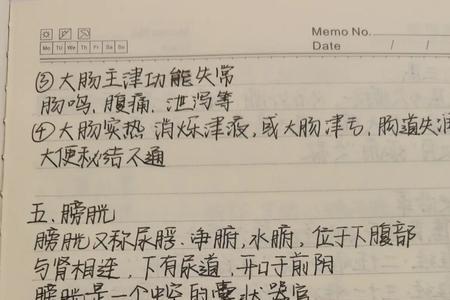 Memo No.
Mo Tu We Th Fr Sa Su
Date / /
③大肠主津功能失常
肠鸣、腹痛、泄泻等
④大肠实热 消烁津液,或大肠津亏,肠道失润
大便秘结不通
五、膀胱
膀胱又称尿脬、净腑,水腑,位于下腹部
与肾相连,下有尿道,开口于前阴
膀胱是一个中空的囊状器官